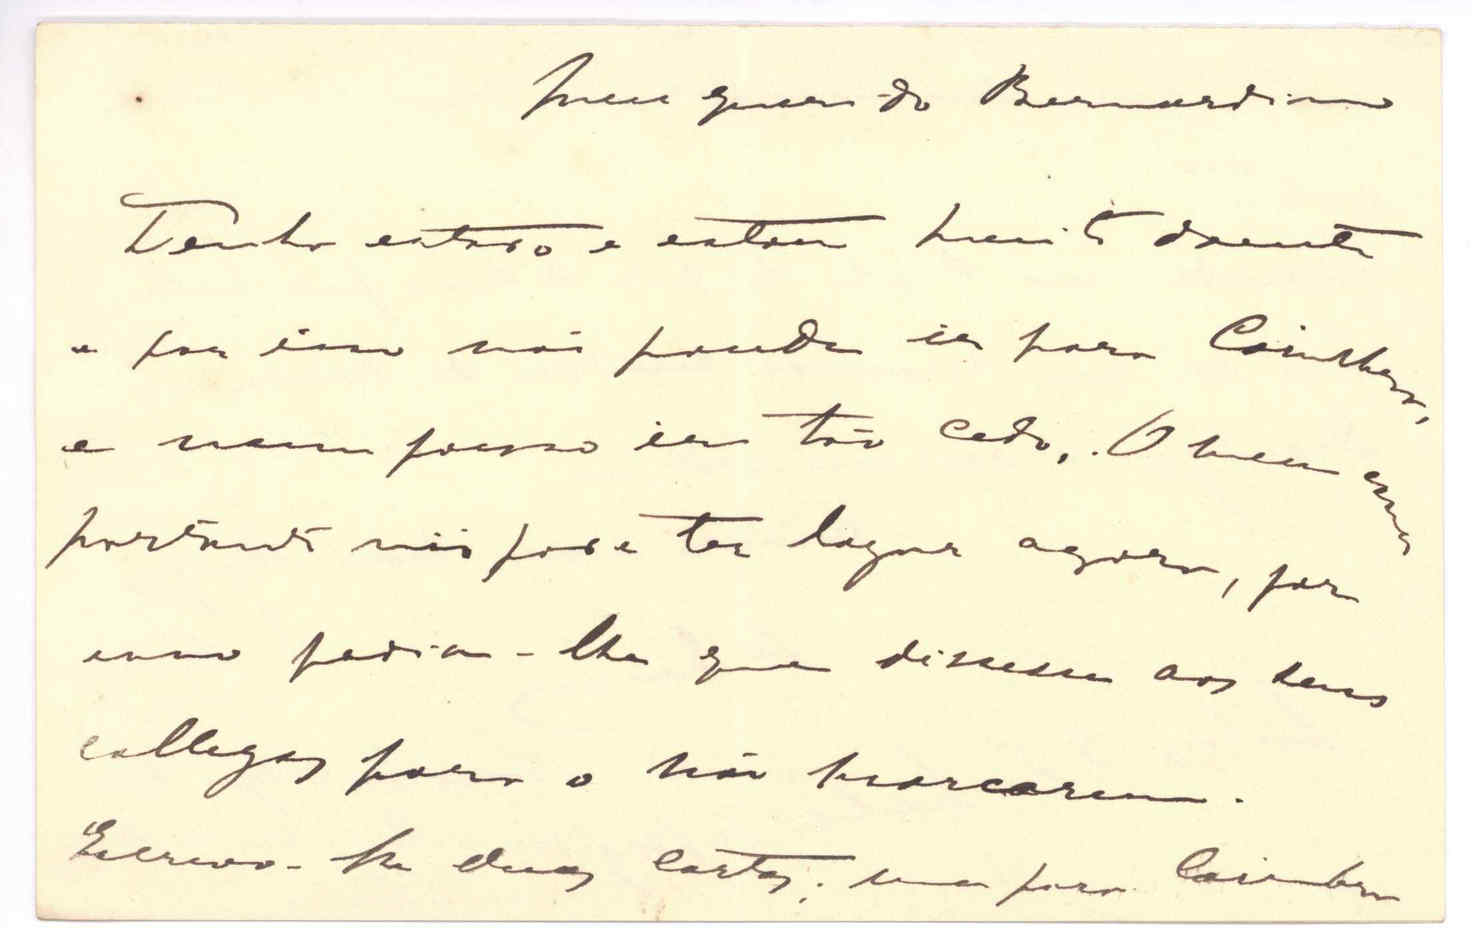 Meu querido Bernardino
Tenho estado e estou muito doente
e por isso não poude ir para Coimbra,
e nem posso ir tão cedo. O meu
portanto não pode ter logar agora, por
isso pedia-lhe que dissesse aos seus
collegas para o não marcarem.
Escrevo-lhe duas cartas; uma para Coimbra